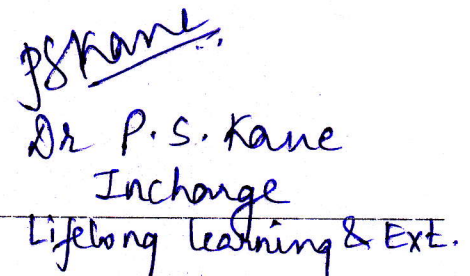 PSKane
Dr P.S. Kane
Incharge
Lifelong learning & Ext.